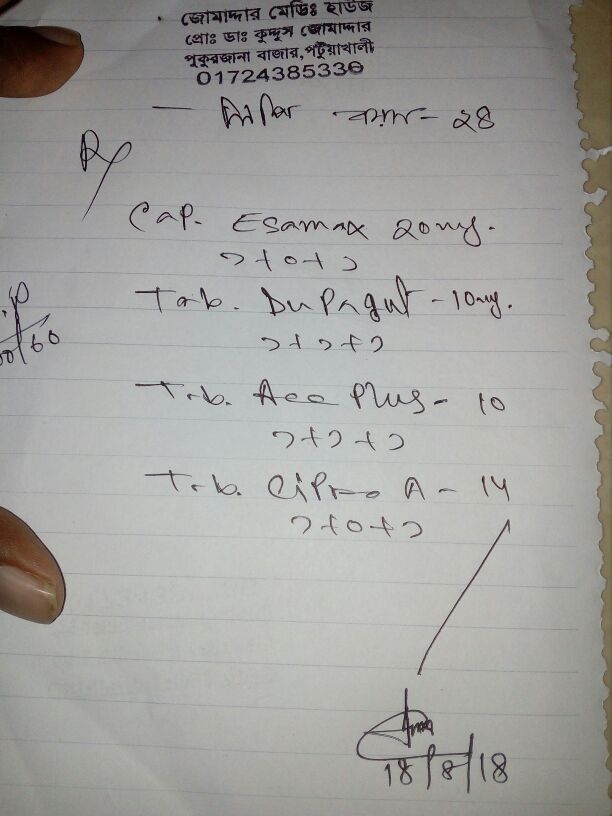 জোমাদ্দার মেডিঃ হাউজ
প্রোঃ ডাঃ কুদ্দুস জোমাদ্দার
পুকুরজানা বাজার, পটুয়াখালী
01724385330
বয়স - ২৪
Rx
Cap. Esamax 20mg.
১+০+১
Tab. Dupagut - 10mg.
১+১+১
Tab. Ace Plus - 10
১+১+১
Tab. Cipro A - 14
১+০+১
18/8/18